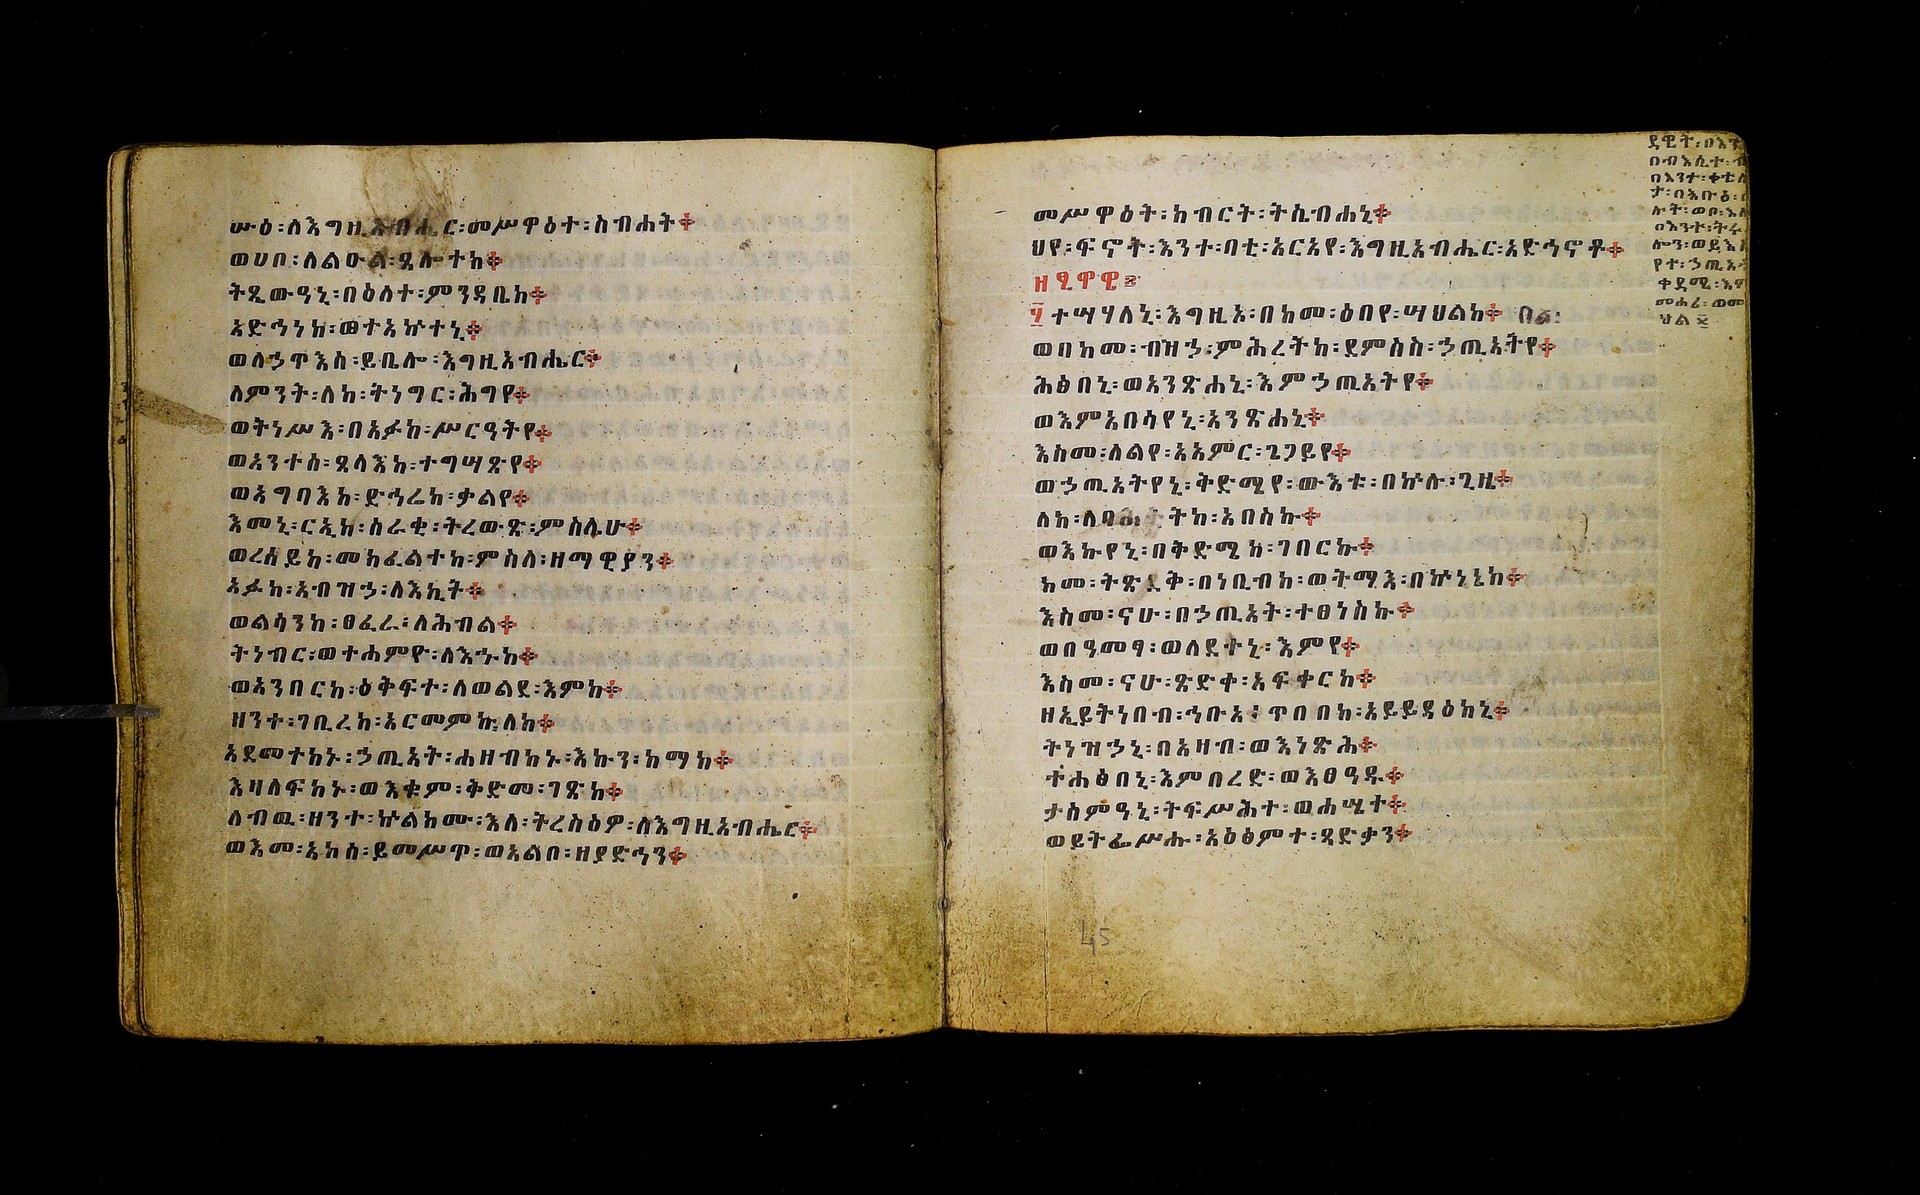 ሡዕ፡ለእግዚአብሔር፡መሥዋዕተ፡ስብሐት፨
ወሀቦ፡ለልዑል፡ጸሎተከ፨
ትጼውዓኒ፡በዕለተ፡ምንዳቤከ፨
አድኅነከ፡ወተአኵተኒ፨
ወለኃጥእስ፡ይቤሎ፡እግዚአብሔር፨
ለምንት፡ለከ፡ትነግር፡ሕግየ፨
ወትነሥእ፡በአፉከ፡ሥርዓትየ፨
ወአንተሰ፡ጸላእከ፡ተግሣጽየ፨
ወአግባእከ፡ድኅሬከ፡ቃልየ፨
እመኒ፡ርኢከ፡ሰራቂ፡ትረውጽ፡ምስሌሁ፨
ወረሰይከ፡መክፈልተከ፡ምስለ፡ዘማዊያን፨
አፉከ፡አብዝኃ፡ለእኪት፨
ወልሳንከ፡ፀፈራ፡ለሕብል፨
ትነብር፡ወተሐምዮ፡ለእኁከ፨
ወአንበርከ፡ዕቅፍተ፡ለወልደ፡እምከ፨
ዘንተ፡ገቢረከ፡አርመምኩ፡ለከ፨
አደመተከኑ፡ኃጢአት፡ሐዘብከኑ፡እኩን፡ከማከ፨
እዛለፍከኑ፡ወእቁም፡ቅድመ፡ገጽከ፨
ለብዉ፡ዘንተ፡ኵልክሙ፡እለ፡ትረስዕዎ፡ለእግዚአብሔር፨
ወእመ፡አኮሰ፡ይመሥጥ፡ወአልቦ፡ዘያድኅን፨
መሥዋዕት፡ክብርት፡ትሴብሐኒ፨
ህየ፡ፍኖት፡እንተ፡ባቲ፡አርአየ፡እግዚአብሔር፡አድኅኖቶ፨
ዘዳዊት፤
፶ ተሣሃለኒ፡እግዚኦ፡በከመ፡ዕበየ፡ሣህልከ፨ በል፡
ወበከመ፡ብዝኃ፡ምሕረትከ፡ደምስስ፡ኃጢአትየ፨
ሕፅበኒ፡ወአንጽሐኒ፡እምኃጢአትየ፨
ወእምአበሳየኒ፡አንጽሐኒ፨
እስመ፡ለልየ፡አአምር፡ጌጋይየ፨
ወኃጢአትየኒ፡ቅድሜየ፡ውእቱ፡በኵሉ፡ጊዜ፨
ለከ፡ለባሕቲትከ፡አበስኩ፨
ወእኩየኒ፡በቅድሜከ፡ገበርኩ፨
ከመ፡ትጽደቅ፡በነቢብከ፡ወትማእ፡በኵነኔከ፨
እስመ፡ናሁ፡በኃጢአት፡ተፀነስኩ፨
ወበዓመፃ፡ወለደተኒ፡እምየ፨
እስመ፡ናሁ፡ጽድቀ፡አፍቀርከ፨
ዘኢይትነበብ፡ኅቡአ፡ጥበበከ፡አይዳዕከኒ፨
ትነዝኃኒ፡በአዛብ፡ወእነጽሕ፨
ተሐፅበኒ፡እምበረድ፡ወእፀዓዱ፨
ታሰምዓኒ፡ትፍሥሕተ፡ወሐሤተ፨
ወይትፌሥሑ፡አዕፅምተ፡ጻድቃን፨
45
ደዊት፡በእን
በብእሲተ፡
በእንተ፡ቀቲለ
ሉት፡ወቦ፡
በእንተ፡
ሎን፡
የተ፡ኃጢአ
ቀደሚ፡
መሐሪ፡ወመ
ህል፤